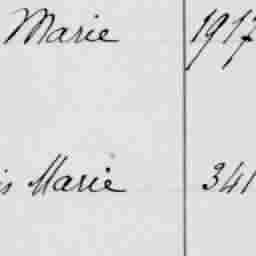 Marie 1917
is Marie 341